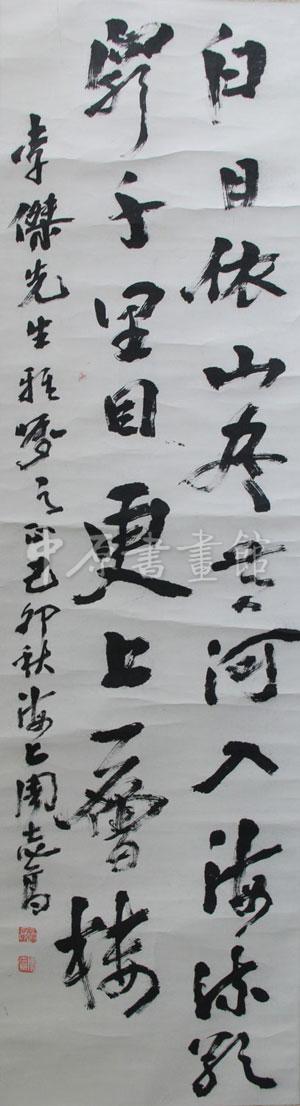 白日依山尽黄河入海流欲
窮千里目更上一層楼
李傑先生雅嘱之正己卯秋海上周志高
中原書畫館